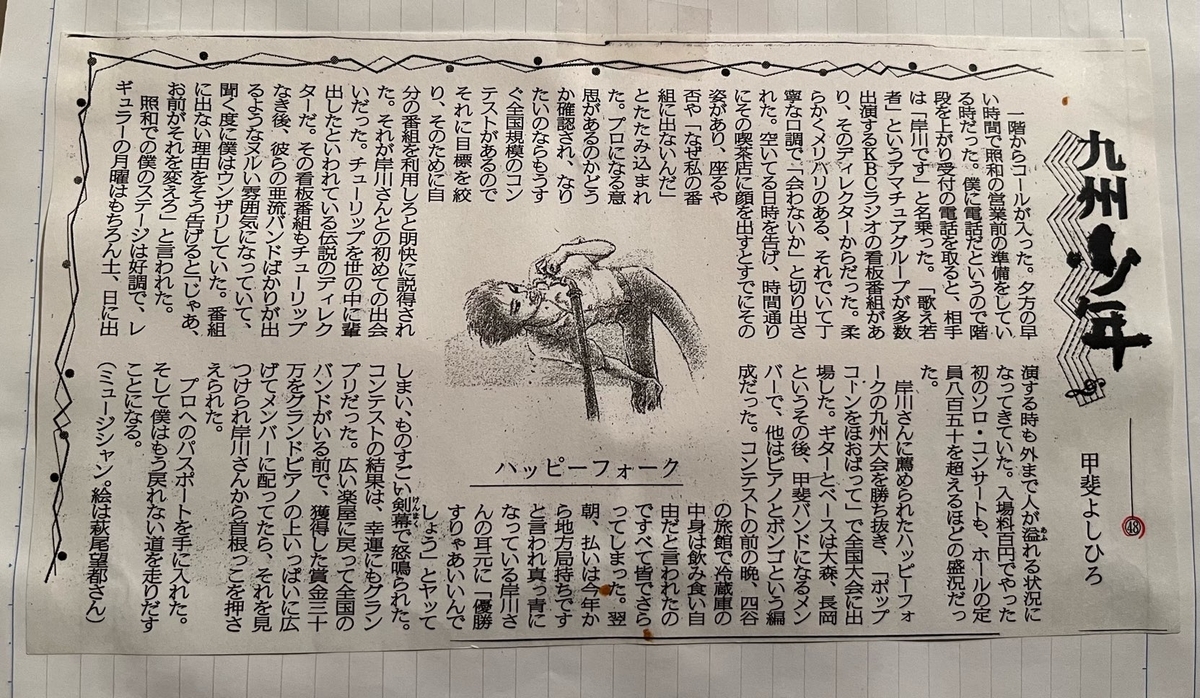 九州少年
㊽
甲斐よしひろ
一階からコールが入った。夕方の早
い時間で照和の営業前の準備をしてい
る時だった。僕に電話だというので階
段を上がり受付の電話を取ると、相手
は「岸川です」と名乗った。「歌え若
者」というアマチュアグループが多数
出演するKBCラジオの看板番組があ
り、そのディレクターからだった。柔
らかくメリハリのある、それでいて丁
寧な口調で、「会わないか」と切り出さ
れた。空いてる日時を告げ、時間通り
にその喫茶店に顔を出すとすでにその
姿があり、座るや
否や「なぜ私の番
組に出ないんだ」
とたたみ込まれ
た。プロになる意
思があるのかどう
か確認され、なり
たいのならもうす
ぐ全国規模のコン
テストがあるので
それに目標を絞
り、そのために自
分の番組を利用しろと明快に説得され
た。それが岸川さんとの初めての出会
いだった。チューリップを世の中に輩
出したといわれている伝説のディレク
ターだ。その看板番組もチューリップ
なき後、彼らの亜流バンドばかりが出
るようなヌルい雰囲気になっていて、
聞く度に僕はウンザリしていた。番組
に出ない理由をそう告げると「じゃあ、
お前がそれを変えろ」と言われた。
照和での僕のステージは好調で、レ
ギュラーの月曜はもちろん土、日に出
演する時も外まで人が溢れる状況に
あふ
なってきていた。入場料百円でやった
初のソロ・コンサートも、ホールの定
員八百五十を超えるほどの盛況だっ
た。
岸川さんに薦められたハッピーフォ
ークの九州大会を勝ち抜き、「ポップ
コーンをほおばって」で全国大会に出
場した。ギターとベースは大森、長岡
というその後、甲斐バンドになるメン
バーで、他はピアノとボンゴという編
成だった。コンテストの前の晩、四谷
の旅館で冷蔵庫の
中身は飲み食い自
由だと言われたの
ですべて皆でさら
ってしまった。翌
朝、払いは今年か
ら地方局持ちです
と言われ真っ青に
なっている岸川さ
んの耳元に「優勝
すりゃあいいんで
しょう」とヤッて
しまい、ものすごい剣幕で怒鳴られた。
けんまく
コンテストの結果は、幸運にもグラン
プリだった。広い楽屋に戻って全国の
バンドがいる前で、獲得した賞金三十
万をグランドピアノの上いっぱいに広
げてメンバーに配ってたら、それを見
つけられ岸川さんから首根っこを押さ
えられた。
プロへのパスポートを手に入れた。
そして僕はもう戻れない道を走りだす
ことになる。
（ミュージシャン。絵は萩尾望都さん）
ハッピーフォーク